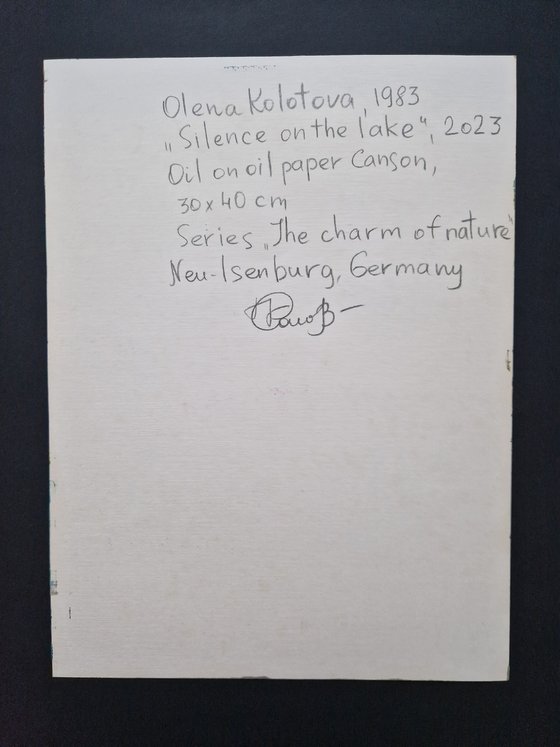 Olena Kolotova, 1983
„Silence on the lake“, 2023
Oil on oil paper Canson,
30 x 40 cm
Series „The charm of nature“
Neu-Isenburg, Germany